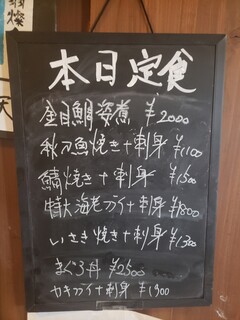 本日定食
金目鯛姿煮 ¥2000
秋刀魚焼き+刺身 ¥1100
鯖焼き+刺身 ¥1500
特大海老フライ+刺身 ¥1800
いさき焼き+刺身 ¥1300
まぐろ丼 ¥2500
カキフライ+刺身 ¥1900